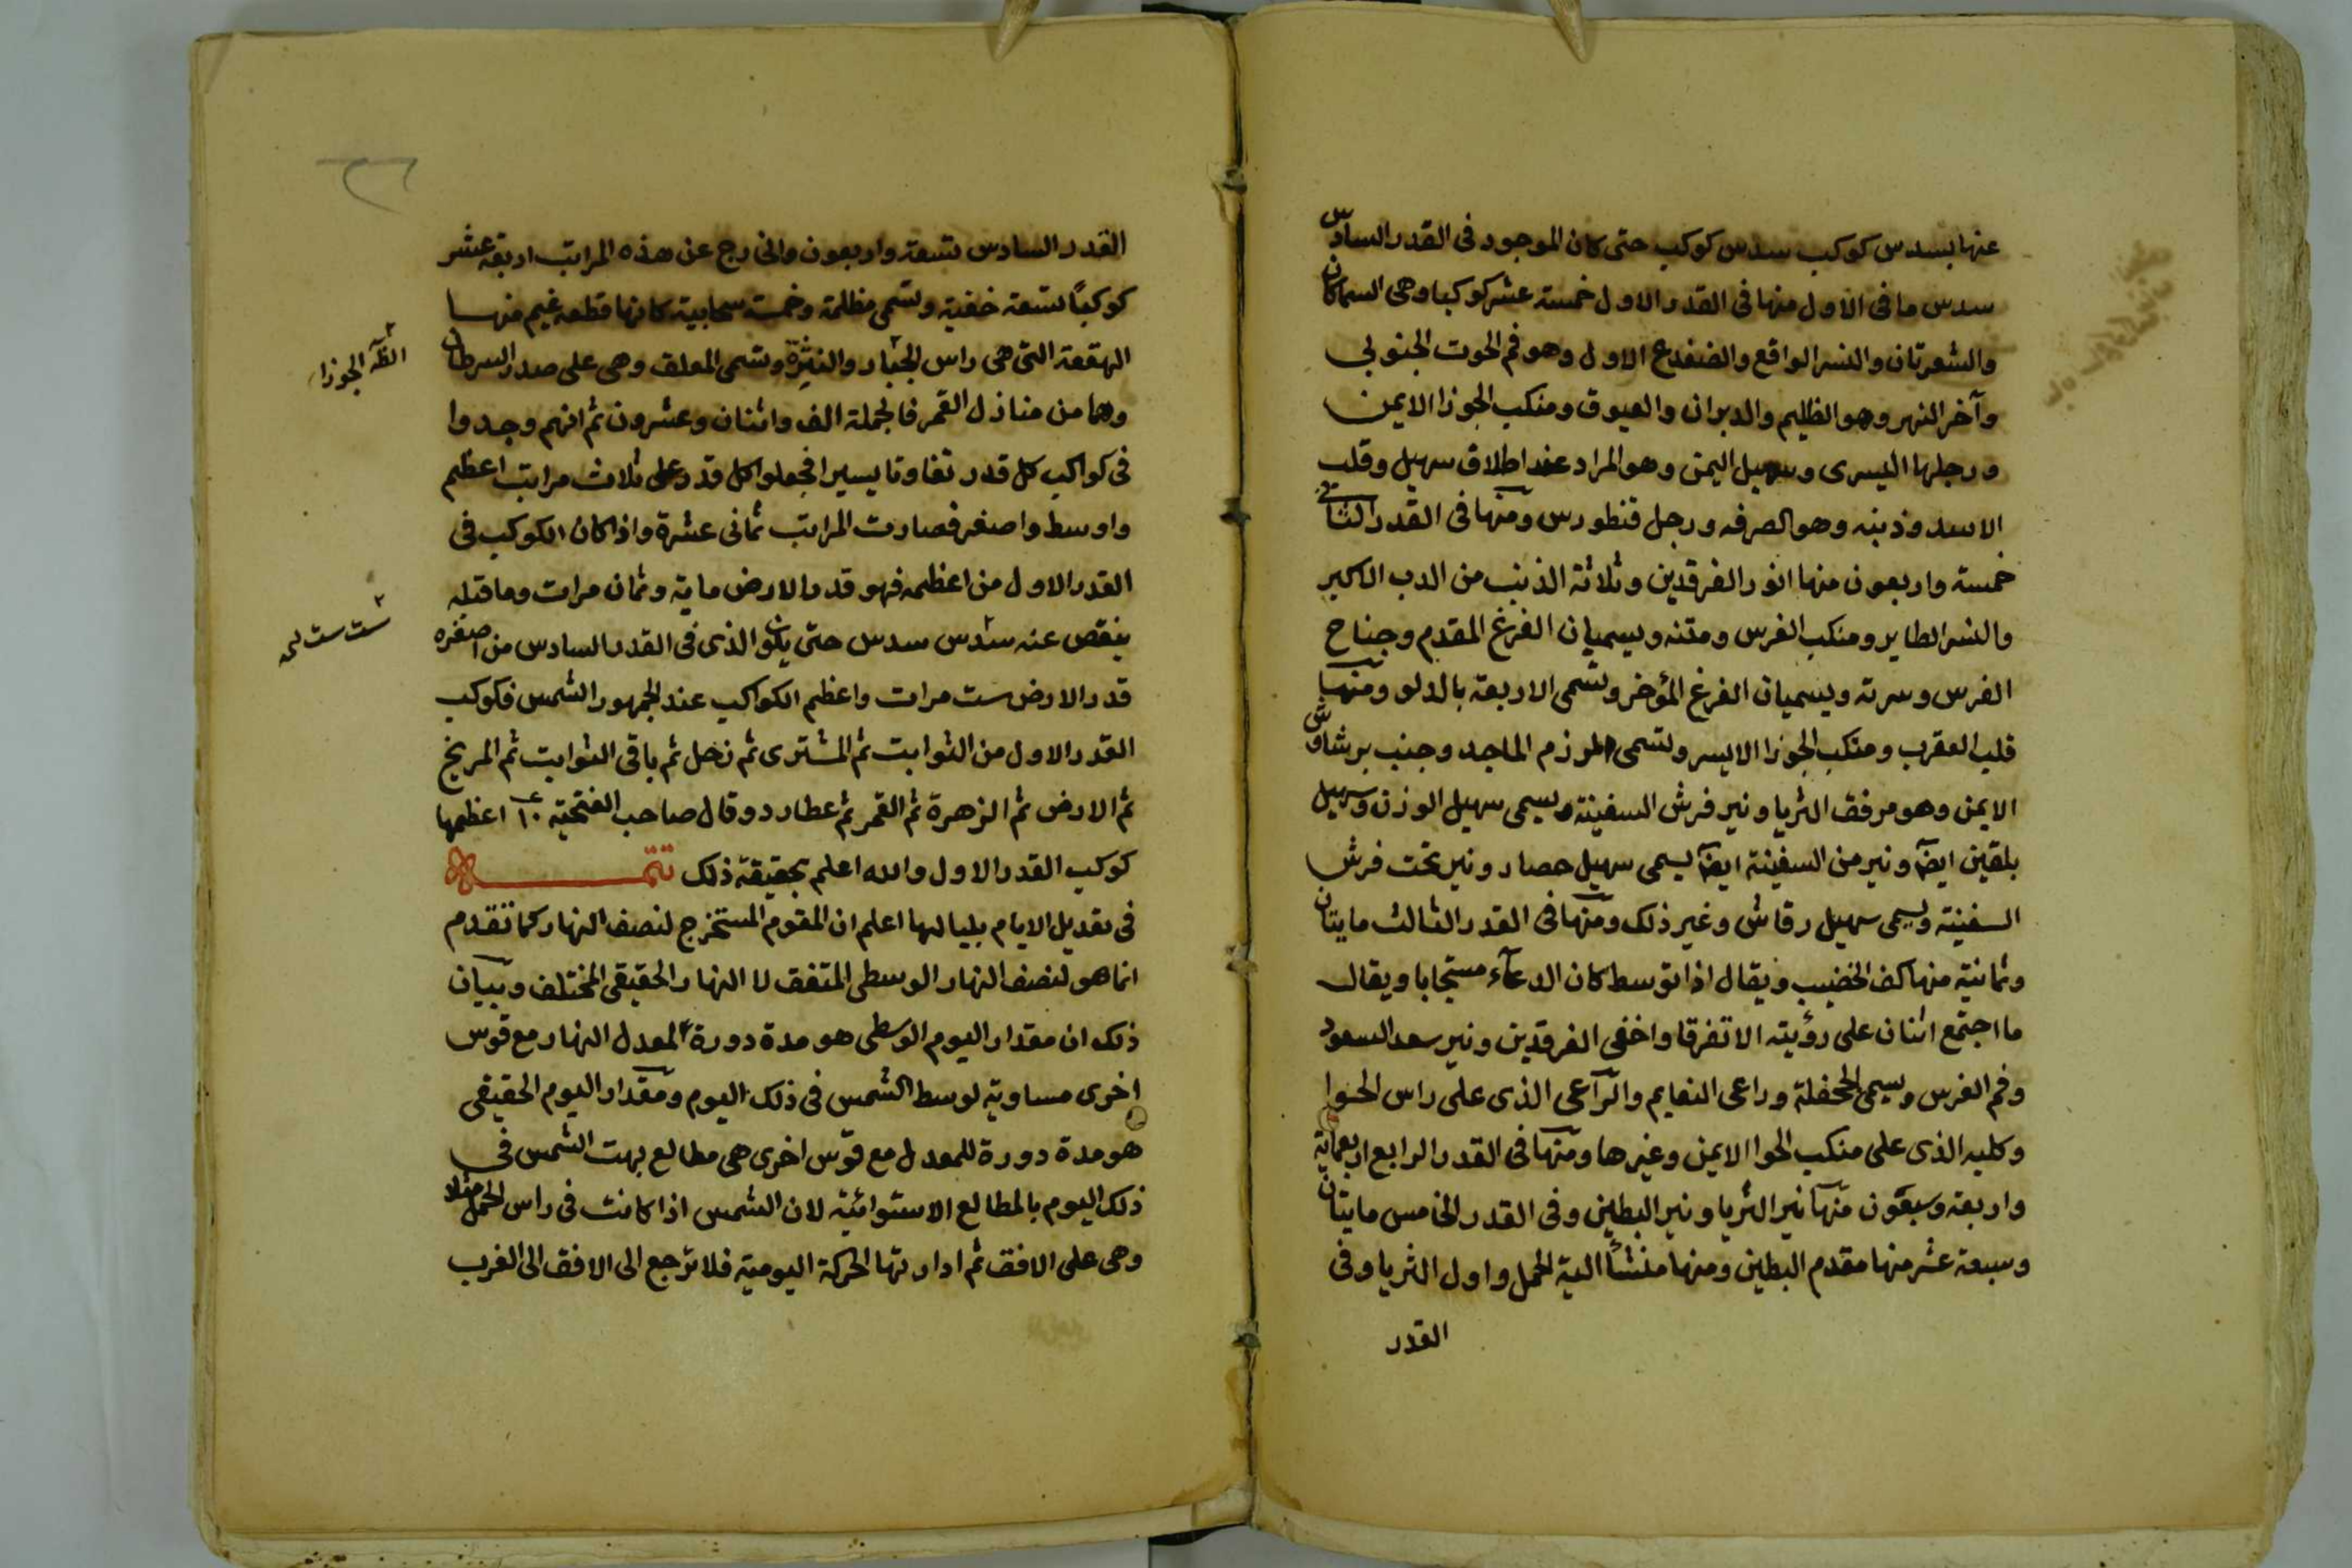 عنها بسدس كوكب سدس كوكب حتى كان الموجود فى القدر السادس
سدس ما فى الاول منها فى القدر الاول خمسة عشر كوكبا وهى السماكان
والشعرتان والنسر الواقع والضفدع الاول وهو فم الحوت الجنوبي
وآخر النهر وهو الظليم والدبران والعيوق ومنكب الجوزا الايمن
ورجلها اليسرى وسهيل اليمن وهو المراد عند اطلاق سهيل وقلب
الاسد وذنبه وهو الصرفه ورجل قنطورس ومنها فى القدر الثانى
خمسة واربعون منها انور الفرقدين وثلاثة الذنب من الدب الاكبر
والنسر الطاير ومنكب الفرس ومتنه ويسميان الفرغ المقدم وجناح
الفرس وسرته ويسميان الفرغ المؤخر وتسمى الاربعة بالدلو ومنها
قلب العقرب ومنكب الجوزا الايسر وتسمى المرزم الماجد وجنب برشاوش
الايمن وهو مرفق الثريا ونير فرش السفينة ويسمى سهيل الوزن وسهيل
بلقين ايضا ونير من السفينة ايضا يسمى سهيل حصار ونير تحت فرش
السفينة ويسمى سهيل رقاش وغير ذلك ومنها فى القدر الثالث مايتان
وثمانية منها كف الخضيب ويقال اذا توسط كان الدعآء مستجابا ويقال
ما اجتمع اثنان على رؤيته الا تفرقا واخفى الفرقدين ونير سعد السعود
وفم الفرس ويسمى الجحفلة وراعى النعايم والراعى الذى على راس الحوا
وكلبه الذى على منكب الحوا الايمن وغيرها ومنها فى القدر الرابع اربعماية
واربعة وسبعون منها نير الثريا ونير البطين وفى القدر الخامس مايتان
وسبعة عشر منها مقدم البطين ومنها منشأ الية الحمل واول الثريا وفى
القدر
القدر السادس تسعة واربعون والخارج عن هذه المراتب اربعة عشر
كوكبًا تسعة خفية وتسمى مظلمة وخمسة سحابية كانها قطعه غيم منها
الهقعة التى هى راس الجبار والنثرة وتسمى المعلف وهى على صدر السرطان
وهما من منازل القمر فالجملة الف واثنان وعشرون ثم انهم وجدوا
فى كواكب كل قدر تفاوتا يسيرا فجعلوا كل قدر على ثلاث مراتب اعظم
واوسط واصغر فصارت المراتب ثمانى عشرة واذا كان الكوكب فى
القدر الاول من اعظمه فهو قدر الارض ماية وثمان مرات وما قبله
ينقص عنه سدس سدس حتى يكون الذى فى القدر السادس من اصغره
قدر الارض ست مرات واعظم الكواكب عند الجمهور الشمس فكوكب
القدر الاول من الثوابت ثم المشترى ثم زحل ثم باقى الثوابت ثم المريخ
ثم الارض ثم الزهرة ثم القمر ثم عطارد وقال صاحب الفتحية اعظمها
كوكب القدر الاول والله اعلم بحقيقة ذلك تتمه
فى تعديل الايام بلياليها اعلم ان المقوم المستخرج لنصف النهار كما تقدم
انما هو لنصف النهار الوسطى المتفق لا النهار الحقيقى المختلف وبيان
ذلك ان مقدار اليوم الوسطى هو مدة دورة المعدل النهار مع قوس
اخرى مساوية لوسط الشمس فى ذلك اليوم ومقدار اليوم الحقيقى
هو مدة دورة للمعدل مع قوس اخرى هى مطالع بهت الشمس فى
ذلك اليوم بالمطالع الاستوائية لان الشمس اذا كانت فى راس الحمل مثلا
وهى على الافق ثم ادارتها الحركة اليومية فلا ترجع الى الافق الى الغرب
الجوزا